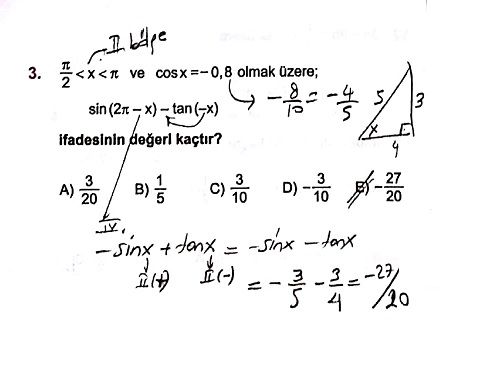 II bölge
3. π/2 < x < π ve cosx = −0,8 olmak üzere;
→ −8/10 = −4/5
5 3
x
4
sin(2π − x) − tan(−x)
ifadesinin değeri kaçtır?
A) 3/20 B) 1/5 C) 3/10 D) −3/10 E) −27/20
IV.
−sinx + tanx = −sinx − tanx
II(+) II(−) = −3/5 − 3/4 = −27/20